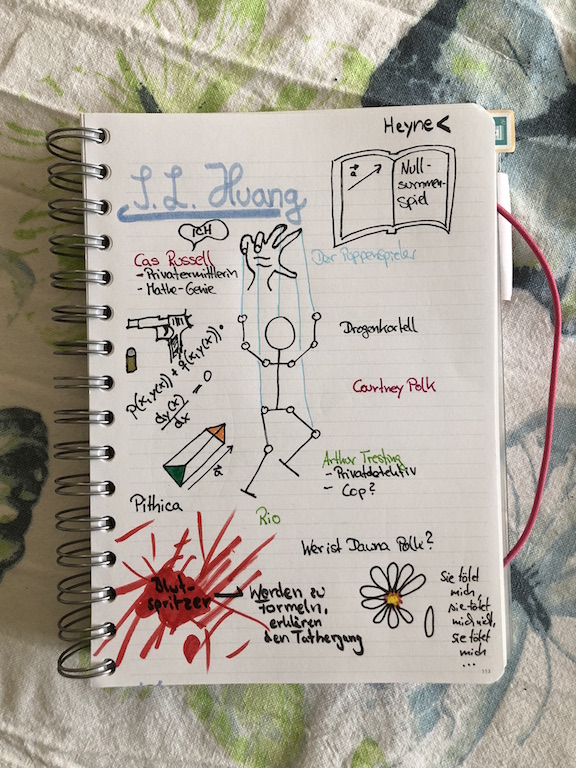 Heyne<
S. L. Huang
a
Null-
summen-
spiel
ICH
Cas Russell
- Privatermittlerin
- Mathe-Genie
Der Puppenspieler
Drogenkartell
p(x,y(x)) + q(x,y(x)) ·
dy(x)
dx
= 0
Courtney Polk
Arthur Tresting
- Privatdetektiv
- Cop?
a
Pithica
Rio
Wer ist Dawna Polk?
Blut-
spritzer
Werden zu
Formeln,
erklären
den Tathergang
Sie tötet
mich
sie tötet
mich nicht,
sie tötet
mich
...
113